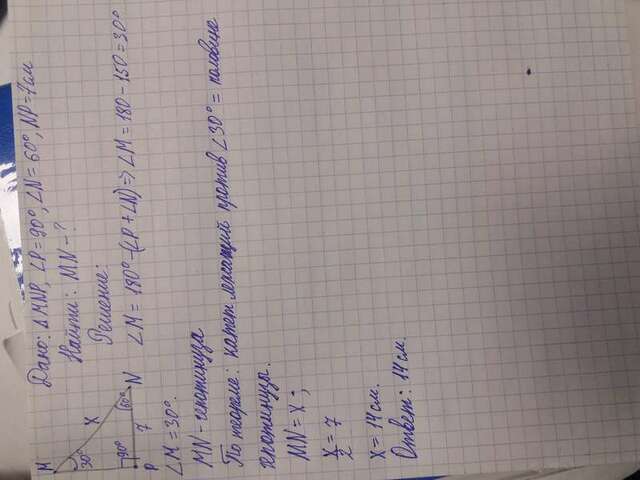 Дано: ΔMNP, ∠P=90°, ∠N=60°, NP=7см
Найти: MN-?
Решение:
M
30°
X
90°
60°
P
7
N
∠M=180°-(∠P+∠N)=>∠M=180-150=30°
∠M=30°.
MN-гепотинуза
По теореме: катет лежащий против ∠30°= половине
гепотинузы.
MN=x;
x/2=7
x=14см.
Ответ: 14см.